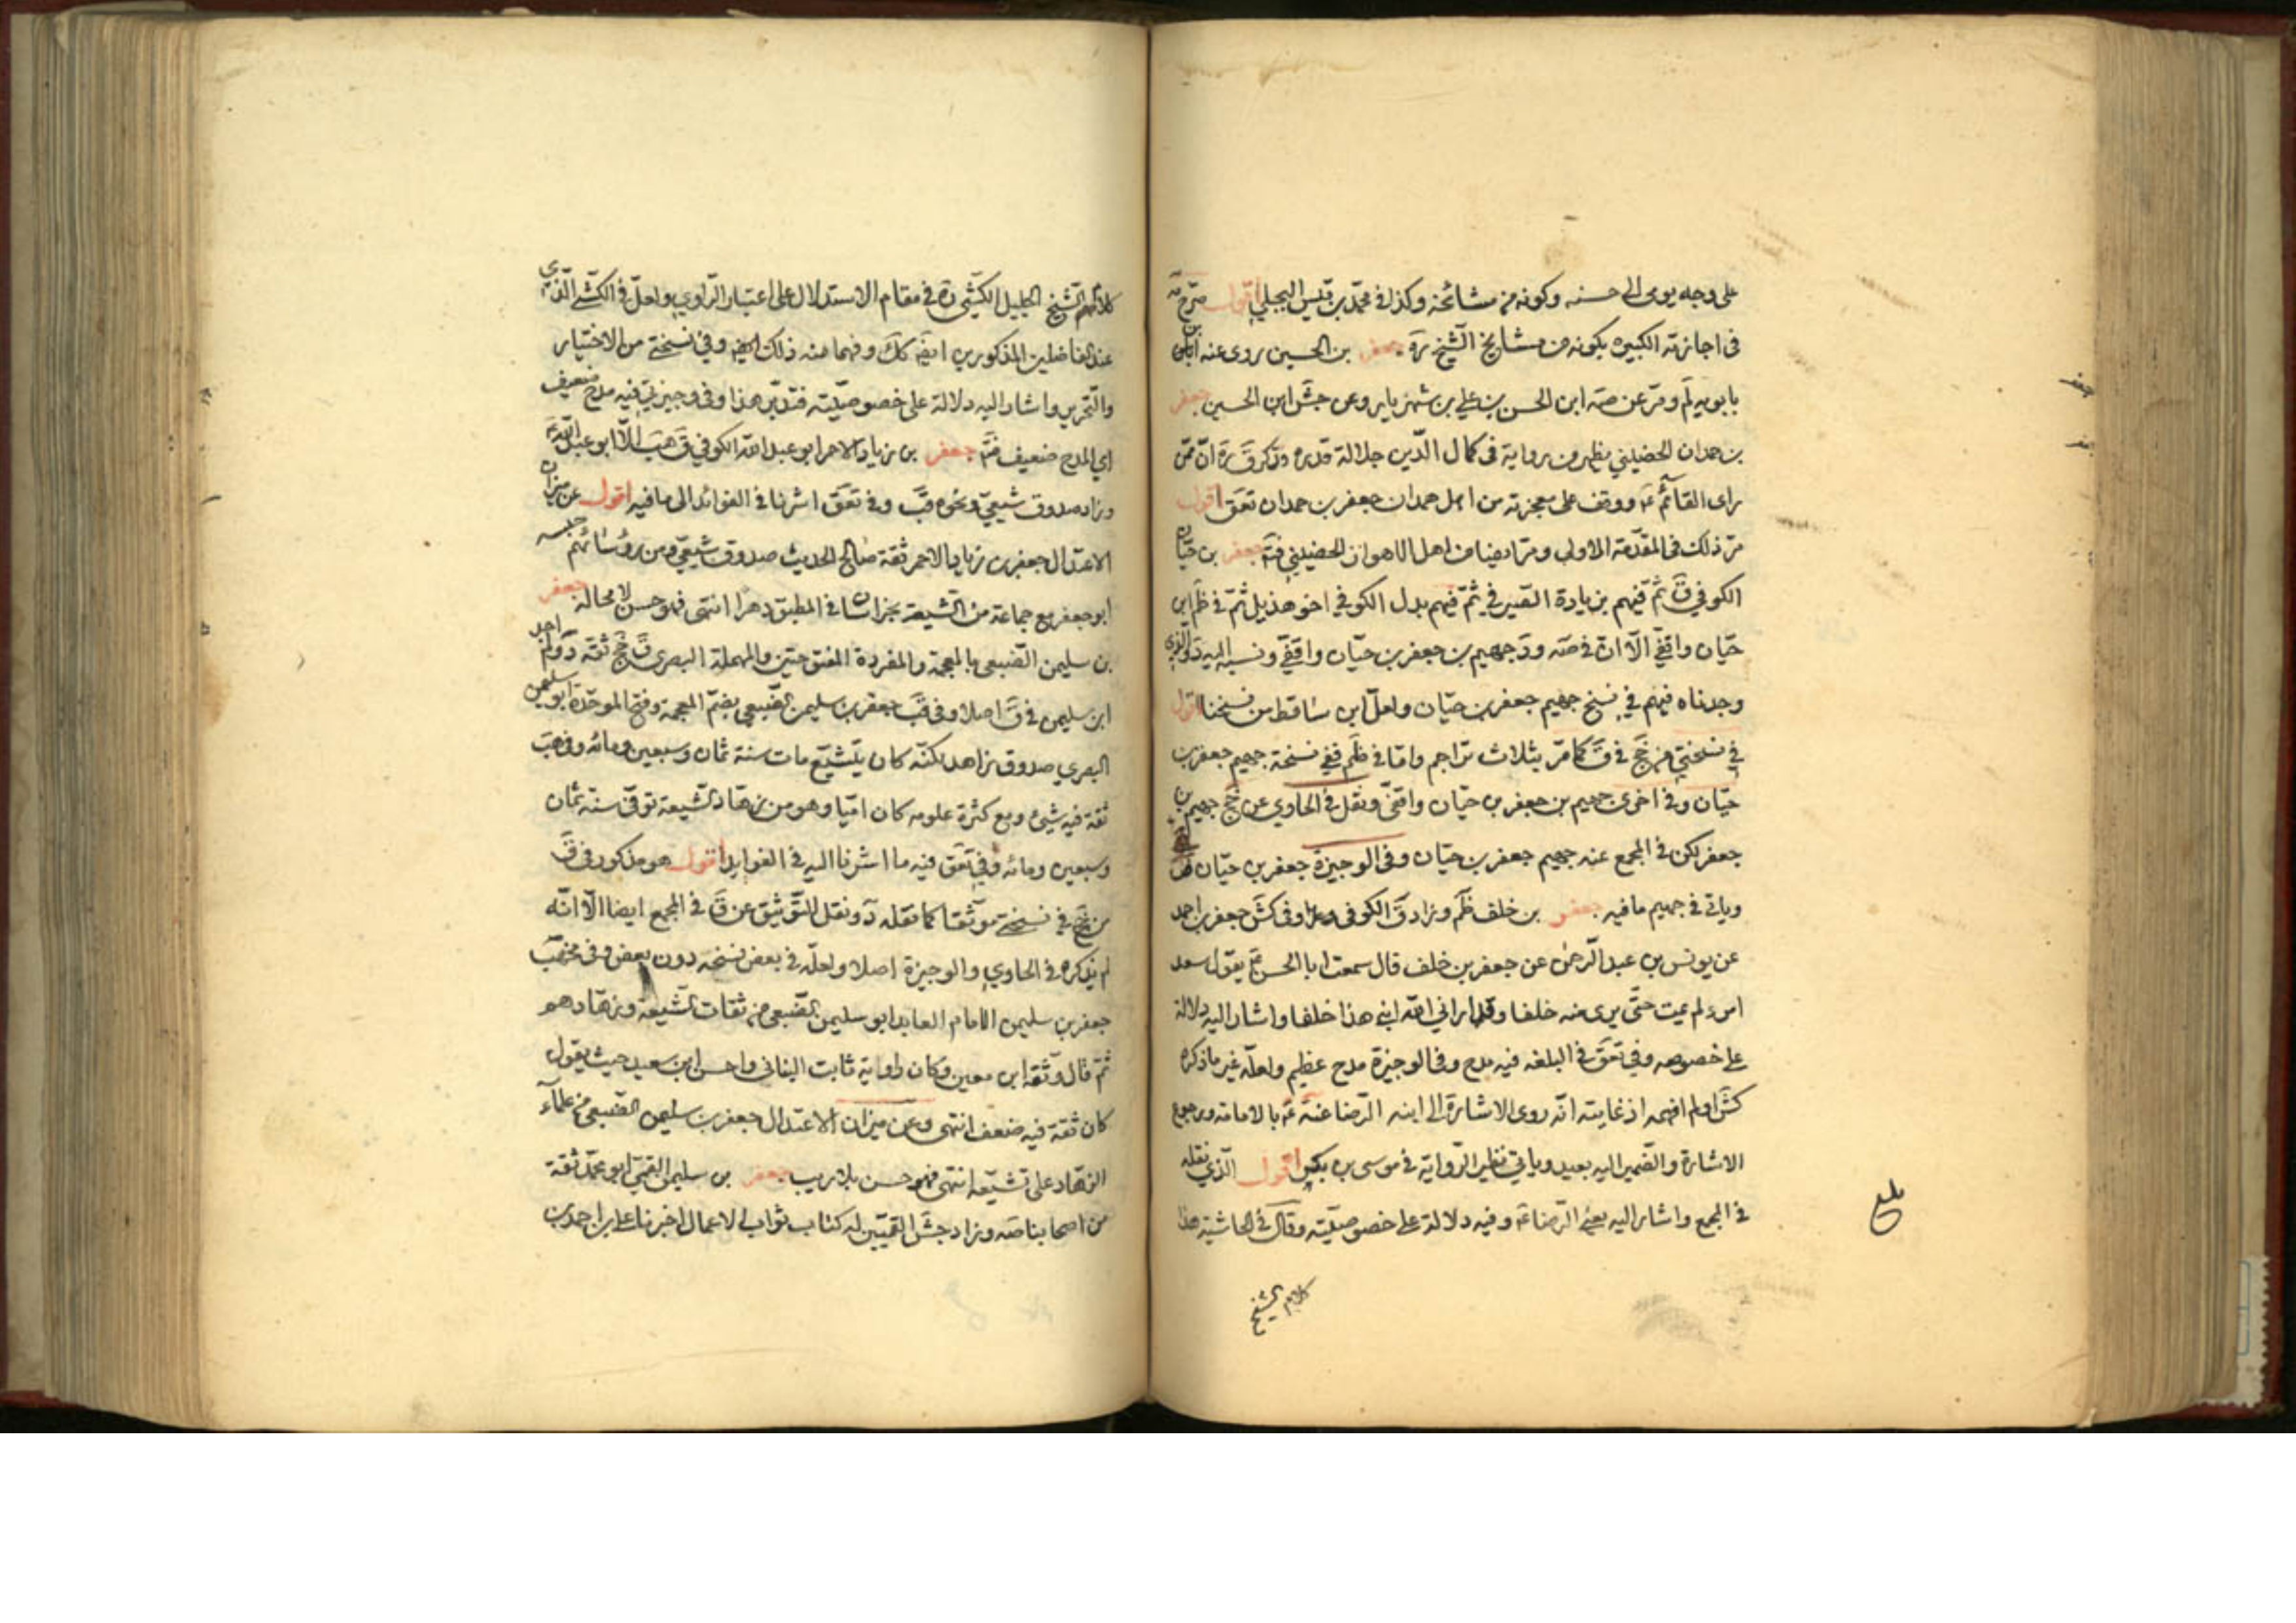 على وجه يومى الى حسنه وكونه من مشائخه وكذا في محمد بن قيس البجلي اقول صرح مه
في اجازته الكبيرة بكونه من مشايخ الشيخ ره جعفر بن الحسين روى عنه ابن
بابويه لم ومر عن صه ابن الحسن بن علي بن شهريار وعن جش ابن الحسين جعفر
بن حمدان الحضيني يظهر من رواية في كمال الدين جلالة قدره وذكر ق ره ان ممن
راى القائم ع ووقف على معجزته من اهل همدان جعفر بن حمدان تعق اقول
مر ذلك في المقدمة الاولى ومر ايضا من اهل الاهواز الحضيني فتم جعفر بن حيان
الكوفي ق ثم فيهم بزيادة الصيرفي ثم فيهم بدل الكوفي اخو هذيل ثم في ظم ابن
حيان واقفي الا ان في صه ود جهيم بن جعفر بن حيان واقفي ونسبه اليه د والذي
وجدناه فيهم في نسخ جهيم جعفر بن حيان ولعل ابن ساقط من نسخنا اقول
في نسختي من جخ في ق كما مر بثلاث تراجم واما في ظم ففي نسخة جهيم جعفر بن
حيان وفي اخرى جهيم بن جعفر بن حيان واقفي ونقل في الحاوي عن جخ جهيم بن
جعفر لكن في المجمع عنه جهيم جعفر بن حيان وفي الوجيزة جعفر بن حيان
وياتي في جهيم مافيه جعفر بن خلف ظم وزاد ق الكوفي وفي كش جعفر بن احمد
عن يونس بن عبد الرحمن عن جعفر بن خلف قال سمعت ابا الحسن ع يقول سعد
امرء لم يمت حتى يرى منه خلفا وقد اراني الله ابني هذا خلفا واشار اليه دلالة
على خصوصه وفي تعق في البلغه فيه مدح وفي الوجيزة مدح عظيم ولعله غير ما ذكره
كش او لم افهمه اذ غايته انه روى الاشارة الى ابنه الرضا عنه ع بالامامة ورجوع
الاشارة والضمير اليه بعيد وياتي نظير الرواية في موسى بن بكر اقول الذي نقله
في المجمع واشار اليه يعني الرضا ع وفيه دلالة على خصوصيته وقال في الحاشية هذا
بلغ
كلام الشيخ
كلام الشيخ الجليل الكشي ره في مقام الاستدلال على اعتبار الراوي ولعل في الكشي الذي
عند الفاضلين المذكورين ايضا كك وفهما منه ذلك ايضا وفي نسختي من الاختيار
والتحرير واشار اليه دلالة على خصوصيته فتدبر هذا وفي وجيزتي فيه مدح ضعيف
اي المدح ضعيف فتم جعفر بن زياد الاحمر ابو عبد الله الكوفي ق هب الا ابو عبد الله
وزاد صدوق شيعي ونحوه قب وفي تعق اشرنا في الفوائد الى ما فيه اقول عن ميزان
الاعتدال جعفر بن زياد الاحمر ثقة صالح الحديث صدوق شيعي ومن رؤسائهم حبسه
ابو جعفر مع جماعة من الشيعة بخراسان في المطبق دهرا انتهى فهو حسن لا محالة جعفر
بن سليمن الضبعي بالمعجمة والمفردة المفتوحتين والمهملة البصري ق جخ ثقة د ولم اجد
ابن سليمن في ق اصلا وفي قب جعفر بن سليمن الضبيعي بضم المعجمة وفتح الموحدة ابو سليمن
البصري صدوق زاهد لكنه كان يتشيع مات سنة ثمان وسبعين ومائه وفي هب
ثقة فيه شيئ ومع كثرة علومه كان اميا وهو من زهاد الشيعة توفي سنة ثمان
وسبعين ومائه وفي تعق فيه ما اشرنا اليه في الفوايد اقول هو مذكور في ق
من جخ في نسختي موثقا كما نقله د ونقل التوثيق عن ق في المجمع ايضا الا انه
لم يذكره في الحاوي والوجيزة اصلا ولعله في بعض نسخه دون بعض وفي مخهب
جعفر بن سليمن الامام العابد ابو سليمن الضبعي من ثقات الشيعة وزهادهم
ثم قال وثقه ابن معين وكان راوية ثابت البناني واحسن ابن سعيد حيث يقول
كان ثقة فيه ضعف انتهى وعن ميزان الاعتدال جعفر بن سليمن الضبيعي من علماء
الزهاد على تشيعه انتهى فهو حسن بلا ريب جعفر بن سليمن القمي ابو محمد ثقة
من اصحابنا صه وزاد جش القميين له كتاب ثواب الاعمال اخبرنا علي بن احمد بن